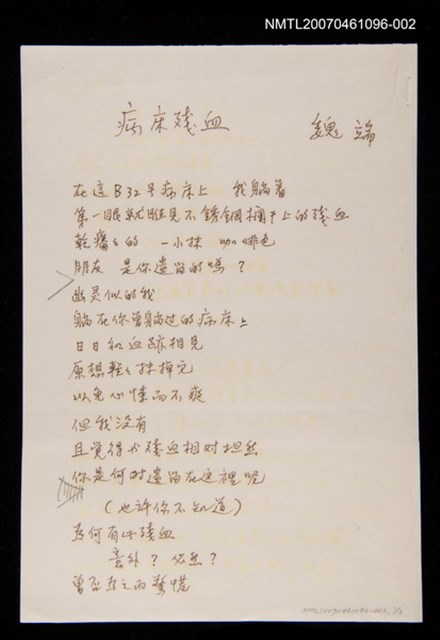 NMTL20070461096-002
病床残血
魏端
在這B32号病床上 我躺着
第一眼就瞧見不銹鋼欄干上的残血
乾癟々的 一小抹 咖啡色
朋友 是你遺留的嗎？
幽灵似的我
躺在你曾躺过的病床上
日日和血跡相見
原想輕々抹掉它
以免心悸而不癡
但我没有
且覺得与残血相对坦然
你是何时遺留在这裡呢
（也許你不知道）
為何有此残血
意外？必然？
曾否為之而驚慌
NMTL20070461096-002, 1/3